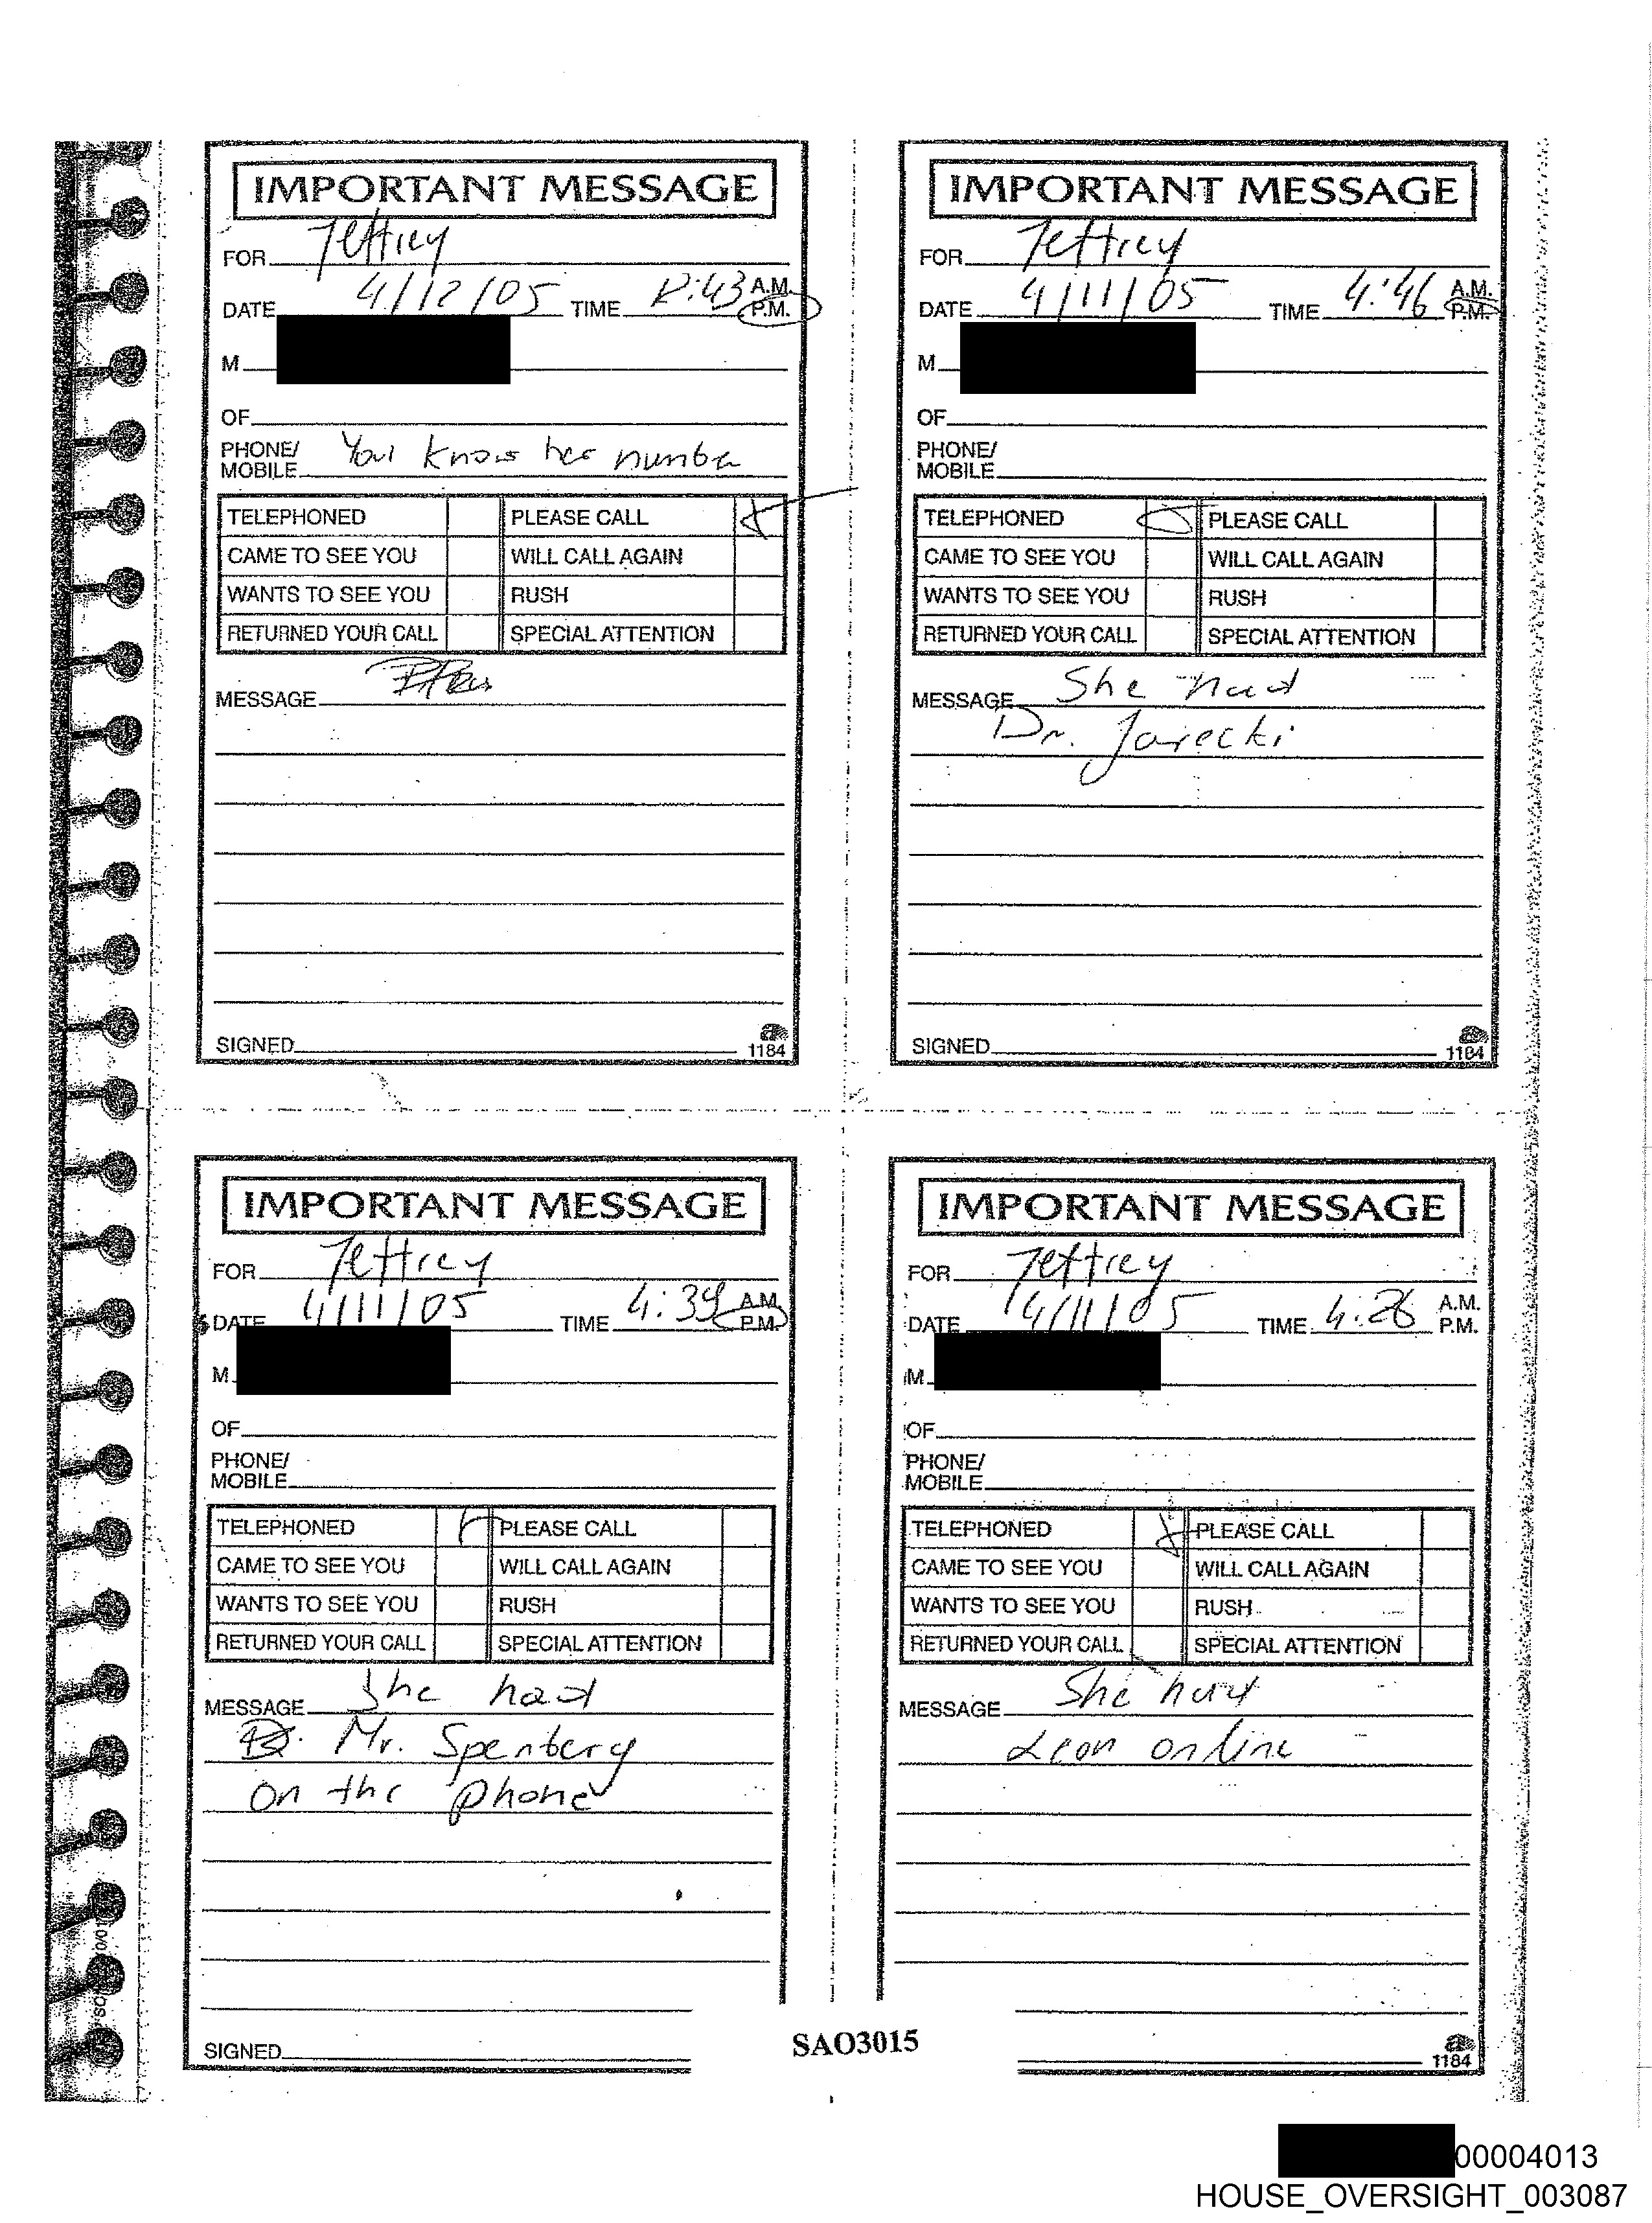 IMPORTANT MESSAGE
FOR Jeffrey
DATE 4/12/05 TIME 12:43 A.M. P.M.
M
OF
PHONE/ MOBILE You know her numbe
TELEPHONED PLEASE CALL
CAME TO SEE YOU WILL CALL AGAIN
WANTS TO SEE YOU RUSH
RETURNED YOUR CALL SPECIAL ATTENTION
MESSAGE
SIGNED
1184
IMPORTANT MESSAGE
FOR Jeffrey
DATE 4/11/05 TIME 4:46 A.M. P.M.
M
OF
PHONE/ MOBILE
TELEPHONED PLEASE CALL
CAME TO SEE YOU WILL CALL AGAIN
WANTS TO SEE YOU RUSH
RETURNED YOUR CALL SPECIAL ATTENTION
MESSAGE She had
Dr. Jarecki
SIGNED
1184
IMPORTANT MESSAGE
FOR Jeffrey
DATE 4/11/05 TIME 4:39 A.M. P.M.
M
OF
PHONE/ MOBILE
TELEPHONED PLEASE CALL
CAME TO SEE YOU WILL CALL AGAIN
WANTS TO SEE YOU RUSH
RETURNED YOUR CALL SPECIAL ATTENTION
MESSAGE She had
Mr. Spenberg
on the phone
SIGNED
IMPORTANT MESSAGE
FOR Jeffrey
DATE 4/11/05 TIME 4:26 A.M. P.M.
M
OF
PHONE/ MOBILE
TELEPHONED PLEASE CALL
CAME TO SEE YOU WILL CALL AGAIN
WANTS TO SEE YOU RUSH
RETURNED YOUR CALL SPECIAL ATTENTION
MESSAGE She had
Leon on line
1184
SAO3015
00004013
HOUSE_OVERSIGHT_003087